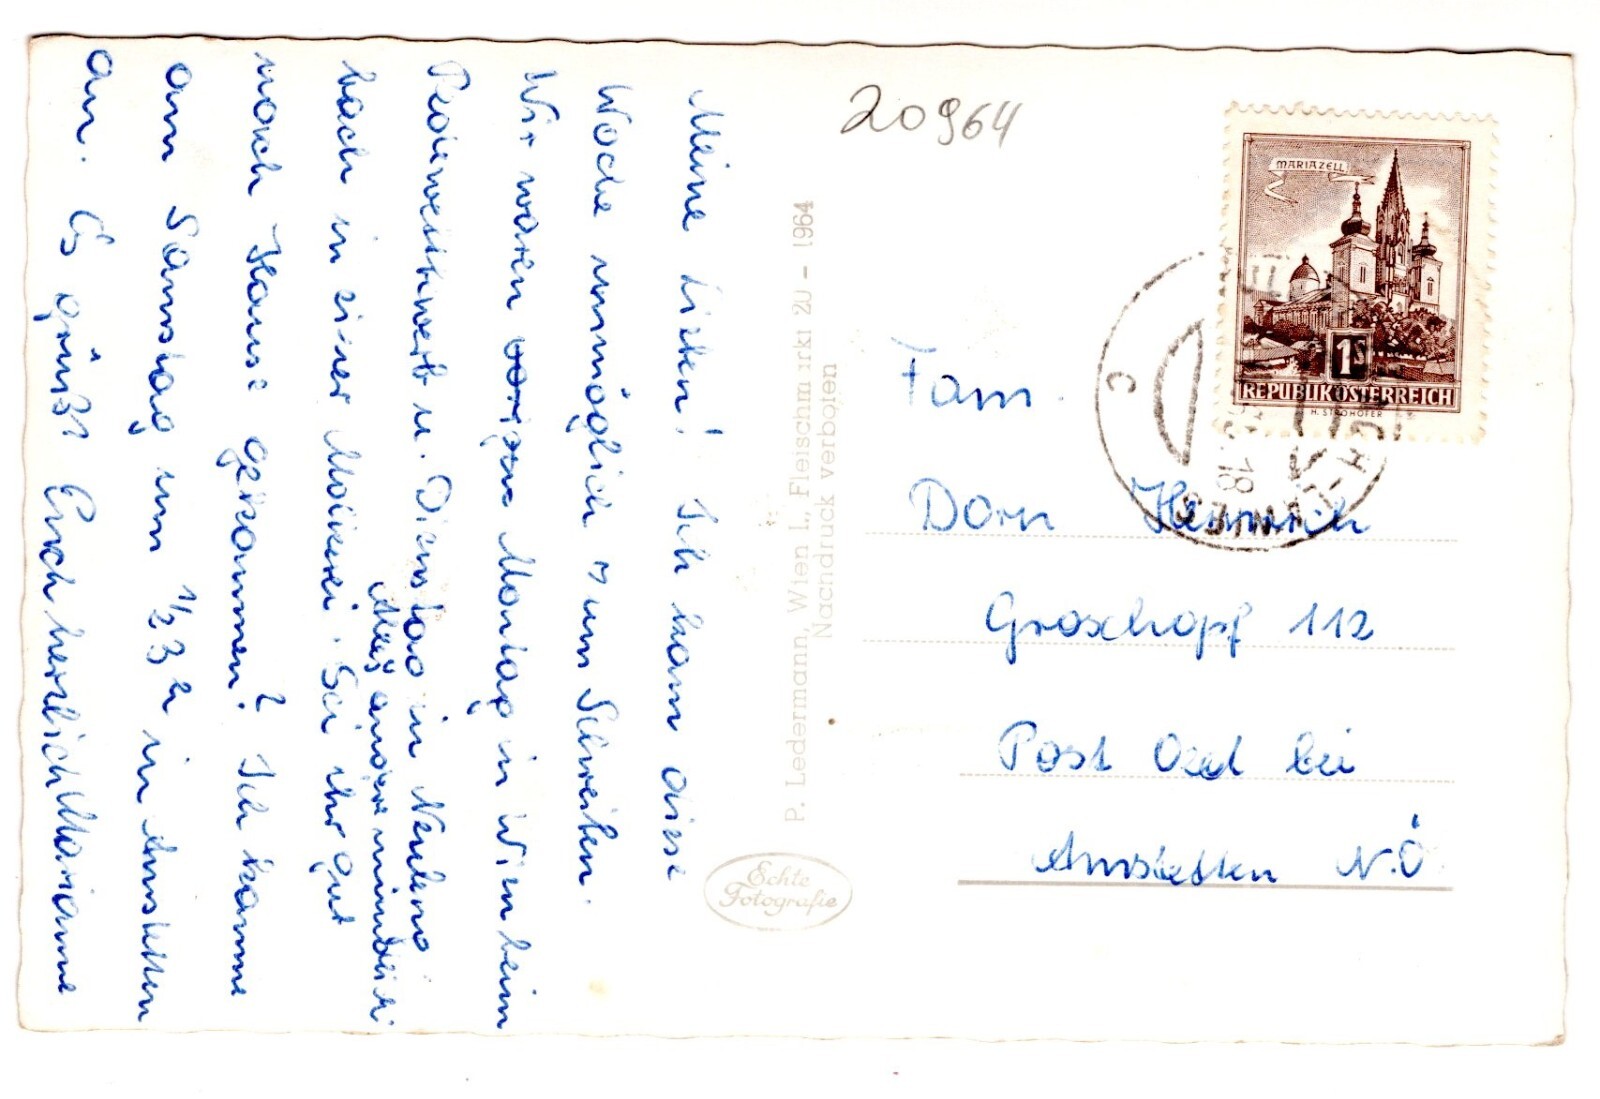 Meine Lieben! Ich kam diese
Woche unmöglich zum Schreiben.
Wir waren vorigen Montag in Wien beim
Redewettbewerb u. Dienstag in Neuleng
bach in einer Molkerei. Seid ihr gut
Alles andere mündlich.
nach Hause gekommen? Ich komme
am Samstag um 1/2 3 h in Amstetten
an. Es grüßt Euch herzlich Marianne
20964
P. Ledermann, Wien I., Fleischm rkt 20 - 1964
Nachdruck verboten
Echte
Fotografie
MARIAZELL
1S
REPUBLIK ÖSTERREICH
H. STROHOFER
C
18
Fam.
Dorn Heinrich
Groschopf 112
Post Oed bei
Amstetten N.Ö.